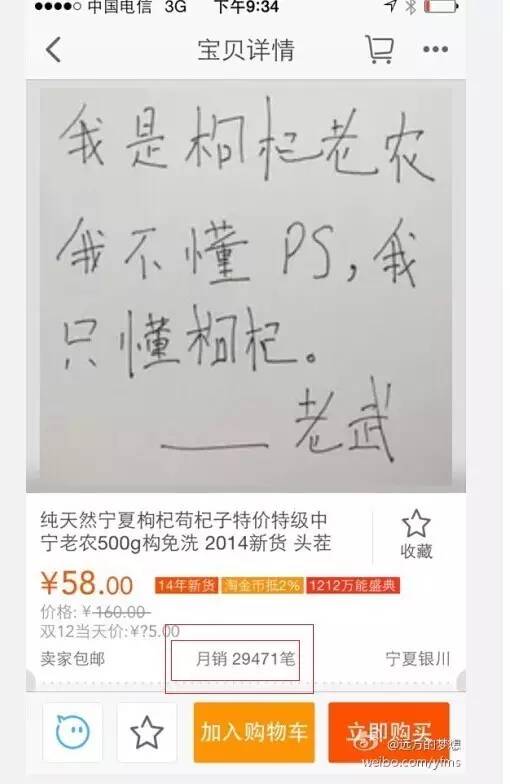 中国电信 3G 下午9:34
宝贝详情
我是枸杞老农
我不懂PS,我
只懂枸杞。
——老武
纯天然宁夏枸杞苟杞子特价特级中
宁老农500g构免洗 2014新货 头茬
收藏
¥58.00 14年新货 淘金币抵2% 1212万能盛典
价格: ¥160.00
双12当天价:¥?5.00
卖家包邮 月销 29471笔 宁夏银川
加入购物车 立即购买
@远方的梦想
weibo.com/yfms